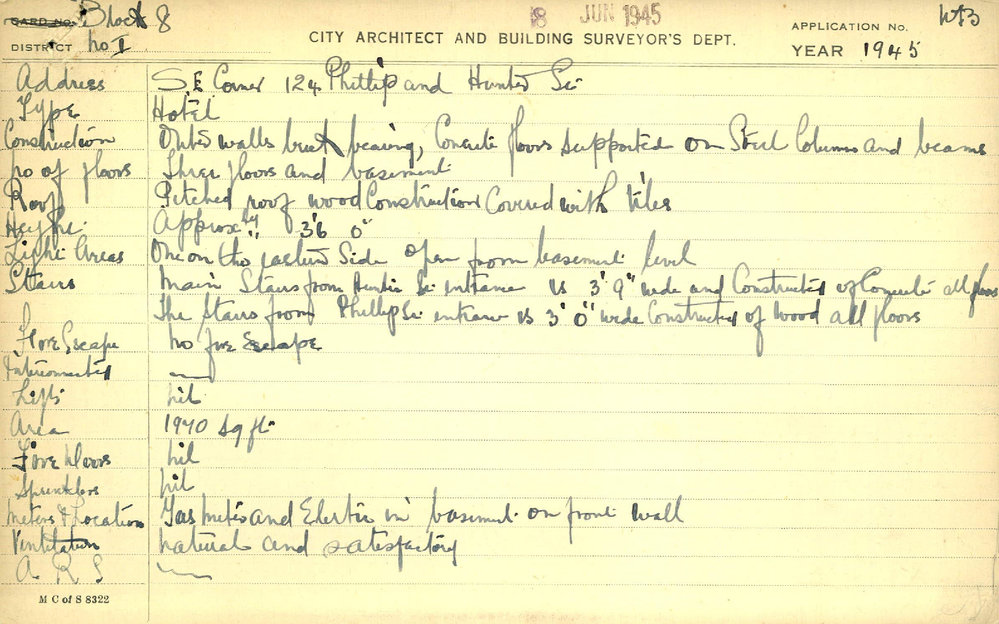 CARD NO. Block 8 18 JUN 1945 APPLICATION No.
DISTRICT No I CITY ARCHITECT AND BUILDING SURVEYOR'S DEPT. YEAR 1945
Address SE Corner 124 Phillip and Hunter St
Type Hotel
Construction Outer walls brick bearing, Concrete floors supported on Steel Columns and beams
No of floors Three floors and basement
Roof Pitched roof wood Construction Covered with tiles
Height Approxly 36' 0"
Light Areas One on the eastern Side open from basement level
Stairs Main Stairs from Hunter St entrance is 3' 9" wide and Constructed of Concrete all floors
The Stairs from Phillip St entrance is 3' 0" wide Constructed of wood all floors
Fire Escape No fire Escape
Interconnected —
Lifts nil
Area 1940 sq ft
Fire Doors nil
Sprinklers nil
Meters & Location Gas meter and Electric in basement on front wall
Ventilation natural and satisfactory
A R S —
M C of S 8322